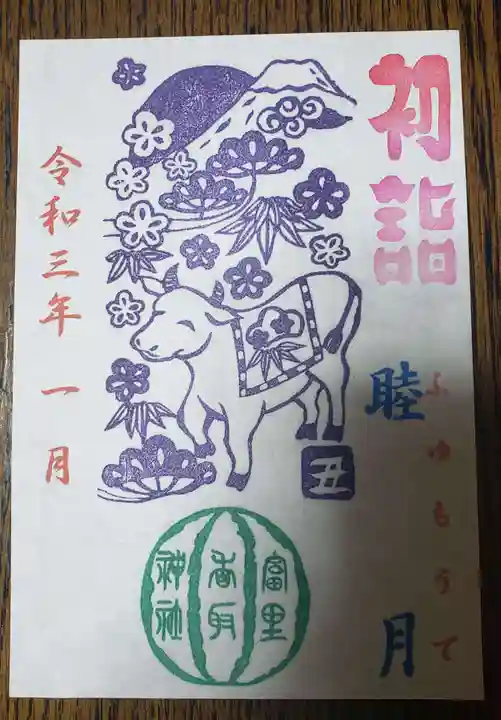 初詣
ふゆもうで
睦月
丑
富里
香取
神社
令和三年 一月